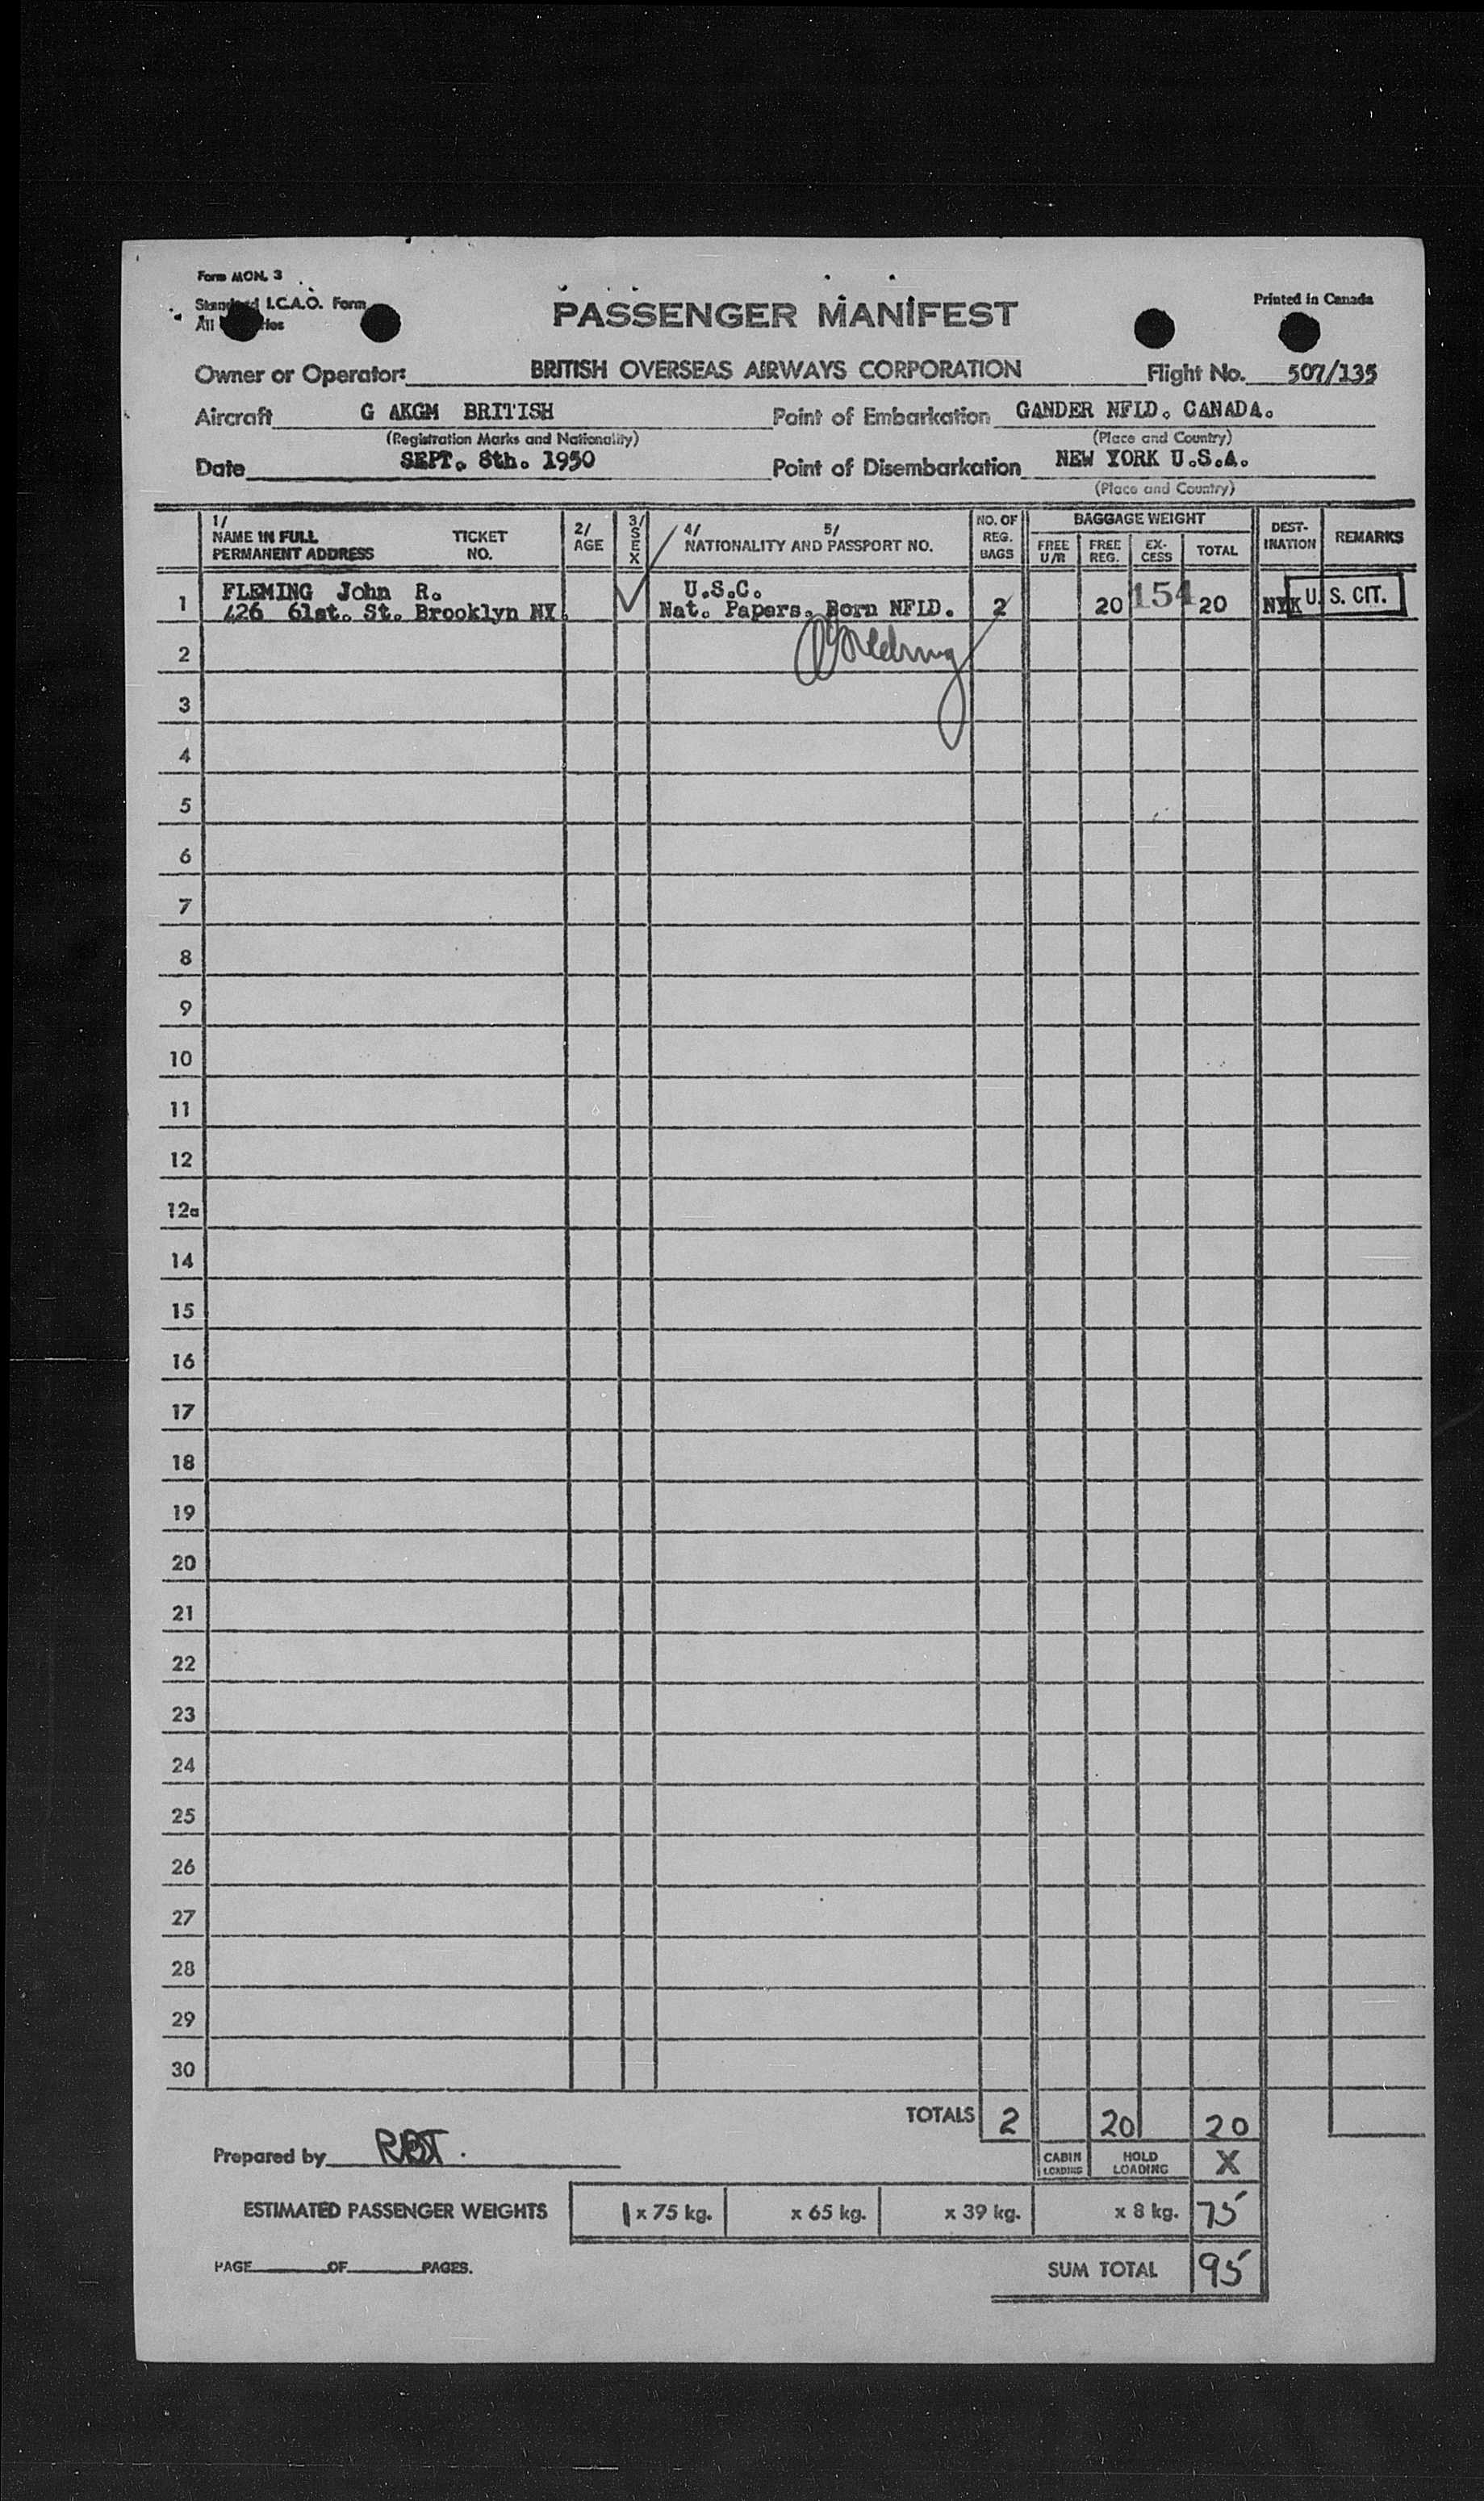 Form MON. 3
Standard I.C.A.O. Form
All
Printed in Canada
PASSENGER MANIFEST
Owner or Operator: BRITISH OVERSEAS AIRWAYS CORPORATION Flight No. 507/135
Aircraft G AKGM BRITISH Point of Embarkation GANDER NFLD. CANADA.
(Registration Marks and Nationality) (Place and Country)
Date SEPT. 8th. 1950 Point of Disembarkation NEW YORK U.S.A.
(Place and Country)
1/ NAME IN FULL PERMANENT ADDRESS TICKET NO. 2/ AGE 3/ SEX 4/ 5/ NATIONALITY AND PASSPORT NO. NO. OF REG. BAGS BAGGAGE WEIGHT FREE U/R FREE REG. EX-CESS TOTAL DEST-INATION REMARKS
FLEMING John R. U.S.C.
1 426 61st. St. Brooklyn NY. Nat. Papers. Born NFLD. 2 20 154 20 NYK U. S. CIT.
2
3
4
5
6
7
8
9
10
11
12
12a
14
15
16
17
18
19
20
21
22
23
24
25
26
27
28
29
30
TOTALS 2 20 20
Prepared by CABIN LOADING HOLD LOADING X
ESTIMATED PASSENGER WEIGHTS 1 x 75 kg. x 65 kg. x 39 kg. x 8 kg. 75
PAGE OF PAGES. SUM TOTAL 95